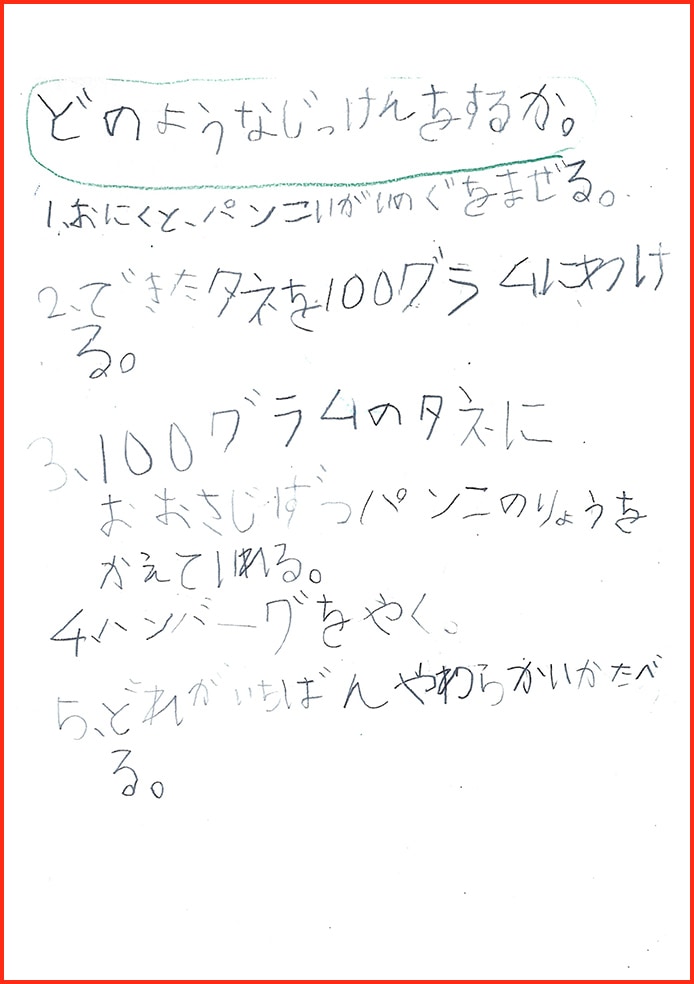 どのようなじっけんをするか。
1、おにくと、パンこいがいのぐをまぜる。
2、できたタネを100グラムにわけ
る。
3、100グラムのタネに
おおさじずつパンこのりょうを
かえていれる。
4、ハンバーグをやく。
5、どれがいちばんやわらかいかたべ
る。